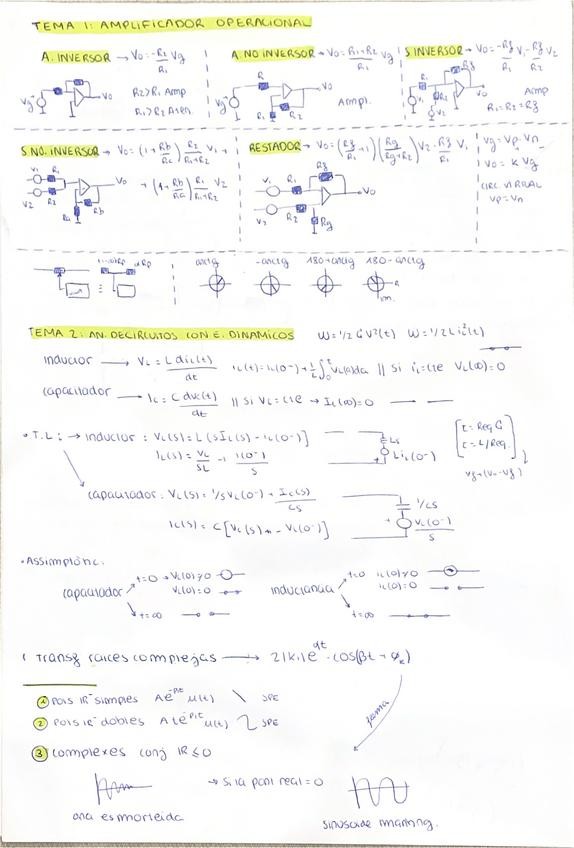 TEMA 1: AMPLIFICADOR OPERACIONAL
A. INVERSOR → Vo = -R2/R1 Vg
R2>R1 Amp
R1>R2 Aten.
A. NO INVERSOR → Vo = R1+R2/R1 Vg
Ampl.
S. INVERSOR → Vo = -Rf/R1 V1 - Rf/R2 V2
Amp
R1=R2=Rf
S. NO. INVERSOR → Vo = (1+Rb/Ra) R2/R1+R2 V1 +
+ (1+Rb/Ra) R1/R1+R2 V2
RESTADOR → Vo = (Rf/R1+1)(Rg/Rg+R2) V2 - Rf/R1 V1
Vg = Vp - Vn
Vo = K Vg
CIRC. VIRTUAL
Vp = Vn
arctg -arctg 180+arctg 180-arctg
TEMA 2: AN. DE CIRCUITOS CON E. DINAMICOS W=1/2 C V²(t) W=1/2 L iL²(t)
inductor → VL = L diL(t)/dt iL(t) = iL(0-) + 1/L ∫ VL(α)dα || Si iL = cte VL(∞)=0
capacitador → ic = C dvc(t)/dt || Si Vc = cte → Ic(∞)=0
T.L: → inductor: VL(s) = L(sIL(s) - iL(0-)]
IL(s) = VL/SL + i(0-)/S
Ls
LiL(0-)
[τ = Req C
τ = L/Req.]
capacitador: Vc(s) = 1/s Vc(0-) + Ic(s)/Cs
Ic(s) = C[
1/Cs
Vc(0-)/S
capacitador t=0 → Vc(0)≠0
Vc(0)=0
t=∞
inductancia t=0 iL(0)≠0
iL(0)=0
t=∞
raices complejas → 2|K|e^αt · cos(βt + φk)
forma
① pols IR- simples Ae^-pit u(t) SPE
② pols IR- dobles Ate^-pit u(t) SPE
③ complexes conj IR ≤ 0
→ Si la part real = 0
ona esmorteida